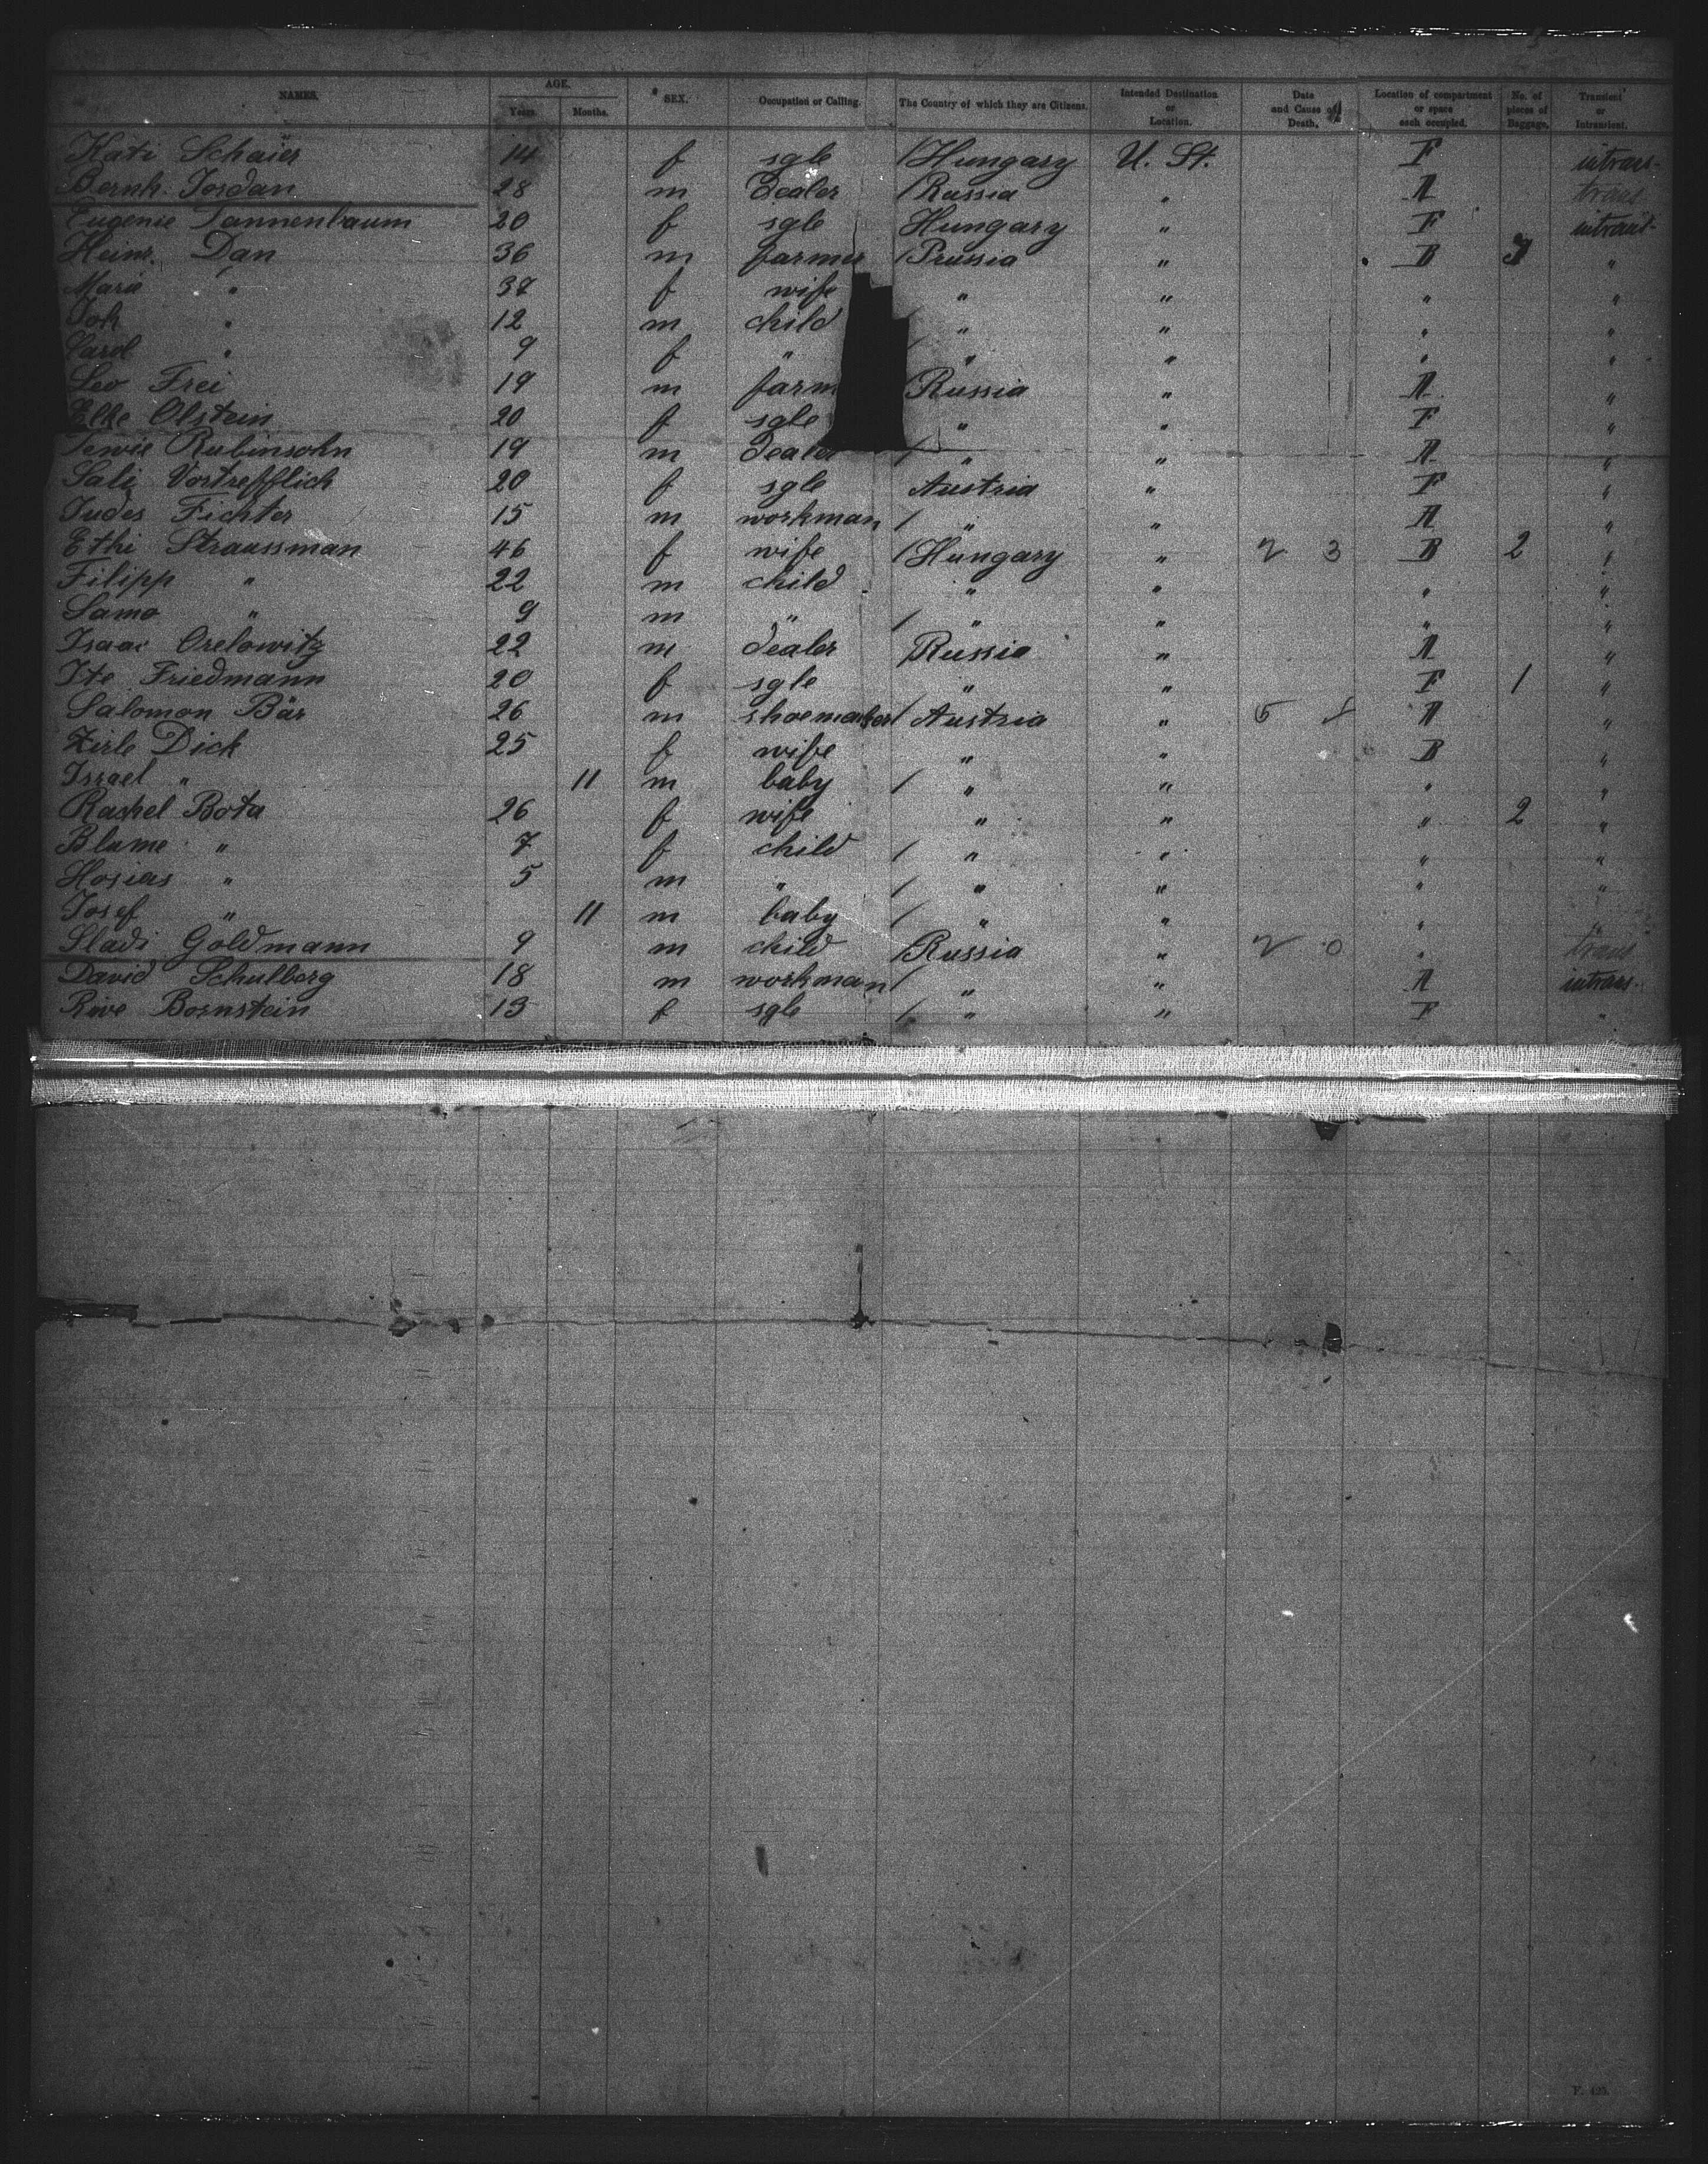 NAMES. AGE. Years. Months. SEX. Occupation or Calling. The Country of which they are Citizens. Intended Destination or Location. Date and Cause of Death. Location of compartment or space each occupied. No. of pieces of Baggage. Transient or Intransient.
Kati Schaier 14 f sgle / Hungary U. St. F intrans-
Bernh. Jordan 28 m Dealer / Russia " A trans
Eugenie Tannenbaum 20 f sgle Hungary " F intransit-
Heinr. Dan 36 m farmer / Prussia " B 3 "
Marie " 37 f wife " " " "
Joh " 12 m child " " " "
Carol " 9 f " " " " "
Leo Frei 19 m farm Russia " A "
Elke Olstein 20 f sgle " " F "
Rubinsohn 19 m Dealer / " " A "
Sali Vortrefflich 20 f sgle Austria " F "
Judes Fichter 15 m workman / " " A "
Ethi Straussman 46 f wife / Hungary " 2 3 B 2 "
Filipp " 22 m child " " " "
Samo " 9 m " / " " " "
Isaac Orelowitz 22 m dealer / Russia " A "
Ite Friedmann 20 f sgle " " F 1 "
Salomon Bär 26 m shoemaker / Austria " 5 A "
Zirle Dick 25 f wife " " B "
Israel " 11 m baby / " " " "
Rachel Bota 26 f wife " " " 2 "
Blume " 7 f child / " " " "
Hosias " 5 m " / " " " "
Josef " 11 m baby / " " " "
Sladi Goldmann 9 m child / Russia " 2 0 " trans
David Schulberg 18 m workman / " " A intrans-
Rive Bornstein 13 f sgle / " " F "